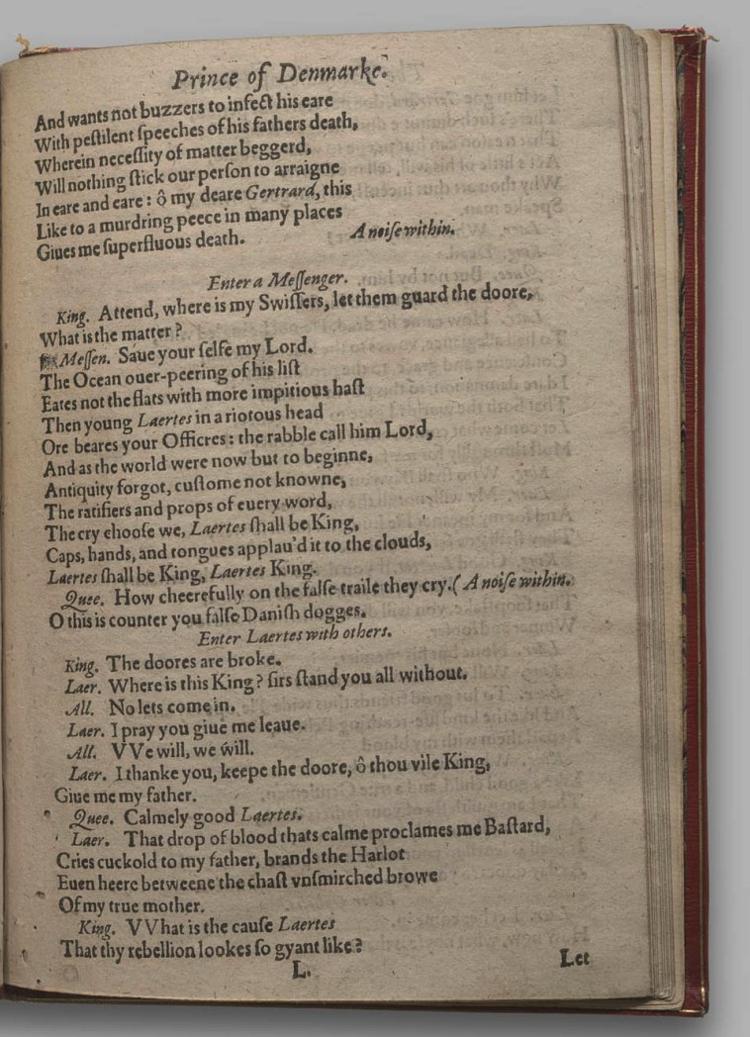 Prince of Denmarke.
And wants not buzzers to infect his eare
With peſtilent ſpeeches of his fathers death,
Wherein neceſſity of matter beggerd,
Will nothing ſtick our perſon to arraigne
In eare and eare : ô my deare Gertrard, this
Like to a murdring peece in many places
Giues me ſuperfluous death. A noiſe within.
Enter a Meſſenger.
King. Attend, where is my Swiſſers, let them guard the doore,
What is the matter ?
Meſſen. Saue your ſelfe my Lord.
The Ocean ouer-peering of his liſt
Eates not the flats with more impitious haſt
Then young Laertes in a riotous head
Ore beares your Officres : the rabble call him Lord,
And as the world were now but to beginne,
Antiquity forgot, cuſtome not knowne,
The ratifiers and props of euery word,
The cry chooſe we, Laertes ſhall be King,
Caps, hands, and tongues applau'd it to the clouds,
Laertes ſhall be King, Laertes King.
Quee. How cheerefully on the falſe traile they cry. ( A noiſe within.
O this is counter you falſe Daniſh dogges.
Enter Laertes with others.
King. The doores are broke.
Laer. Where is this King ? ſirs ſtand you all without.
All. No lets come in.
Laer. I pray you giue me leaue.
All. VVe will, we will.
Laer. I thanke you, keepe the doore, ô thou vile King,
Giue me my father.
Quee. Calmely good Laertes.
Laer. That drop of blood thats calme proclames me Baſtard,
Cries cuckold to my father, brands the Harlot
Euen heere betweene the chaſt vnſmirched browe
Of my true mother.
King. VVhat is the cauſe Laertes
That thy rebellion lookes ſo gyant like ?
L. Let